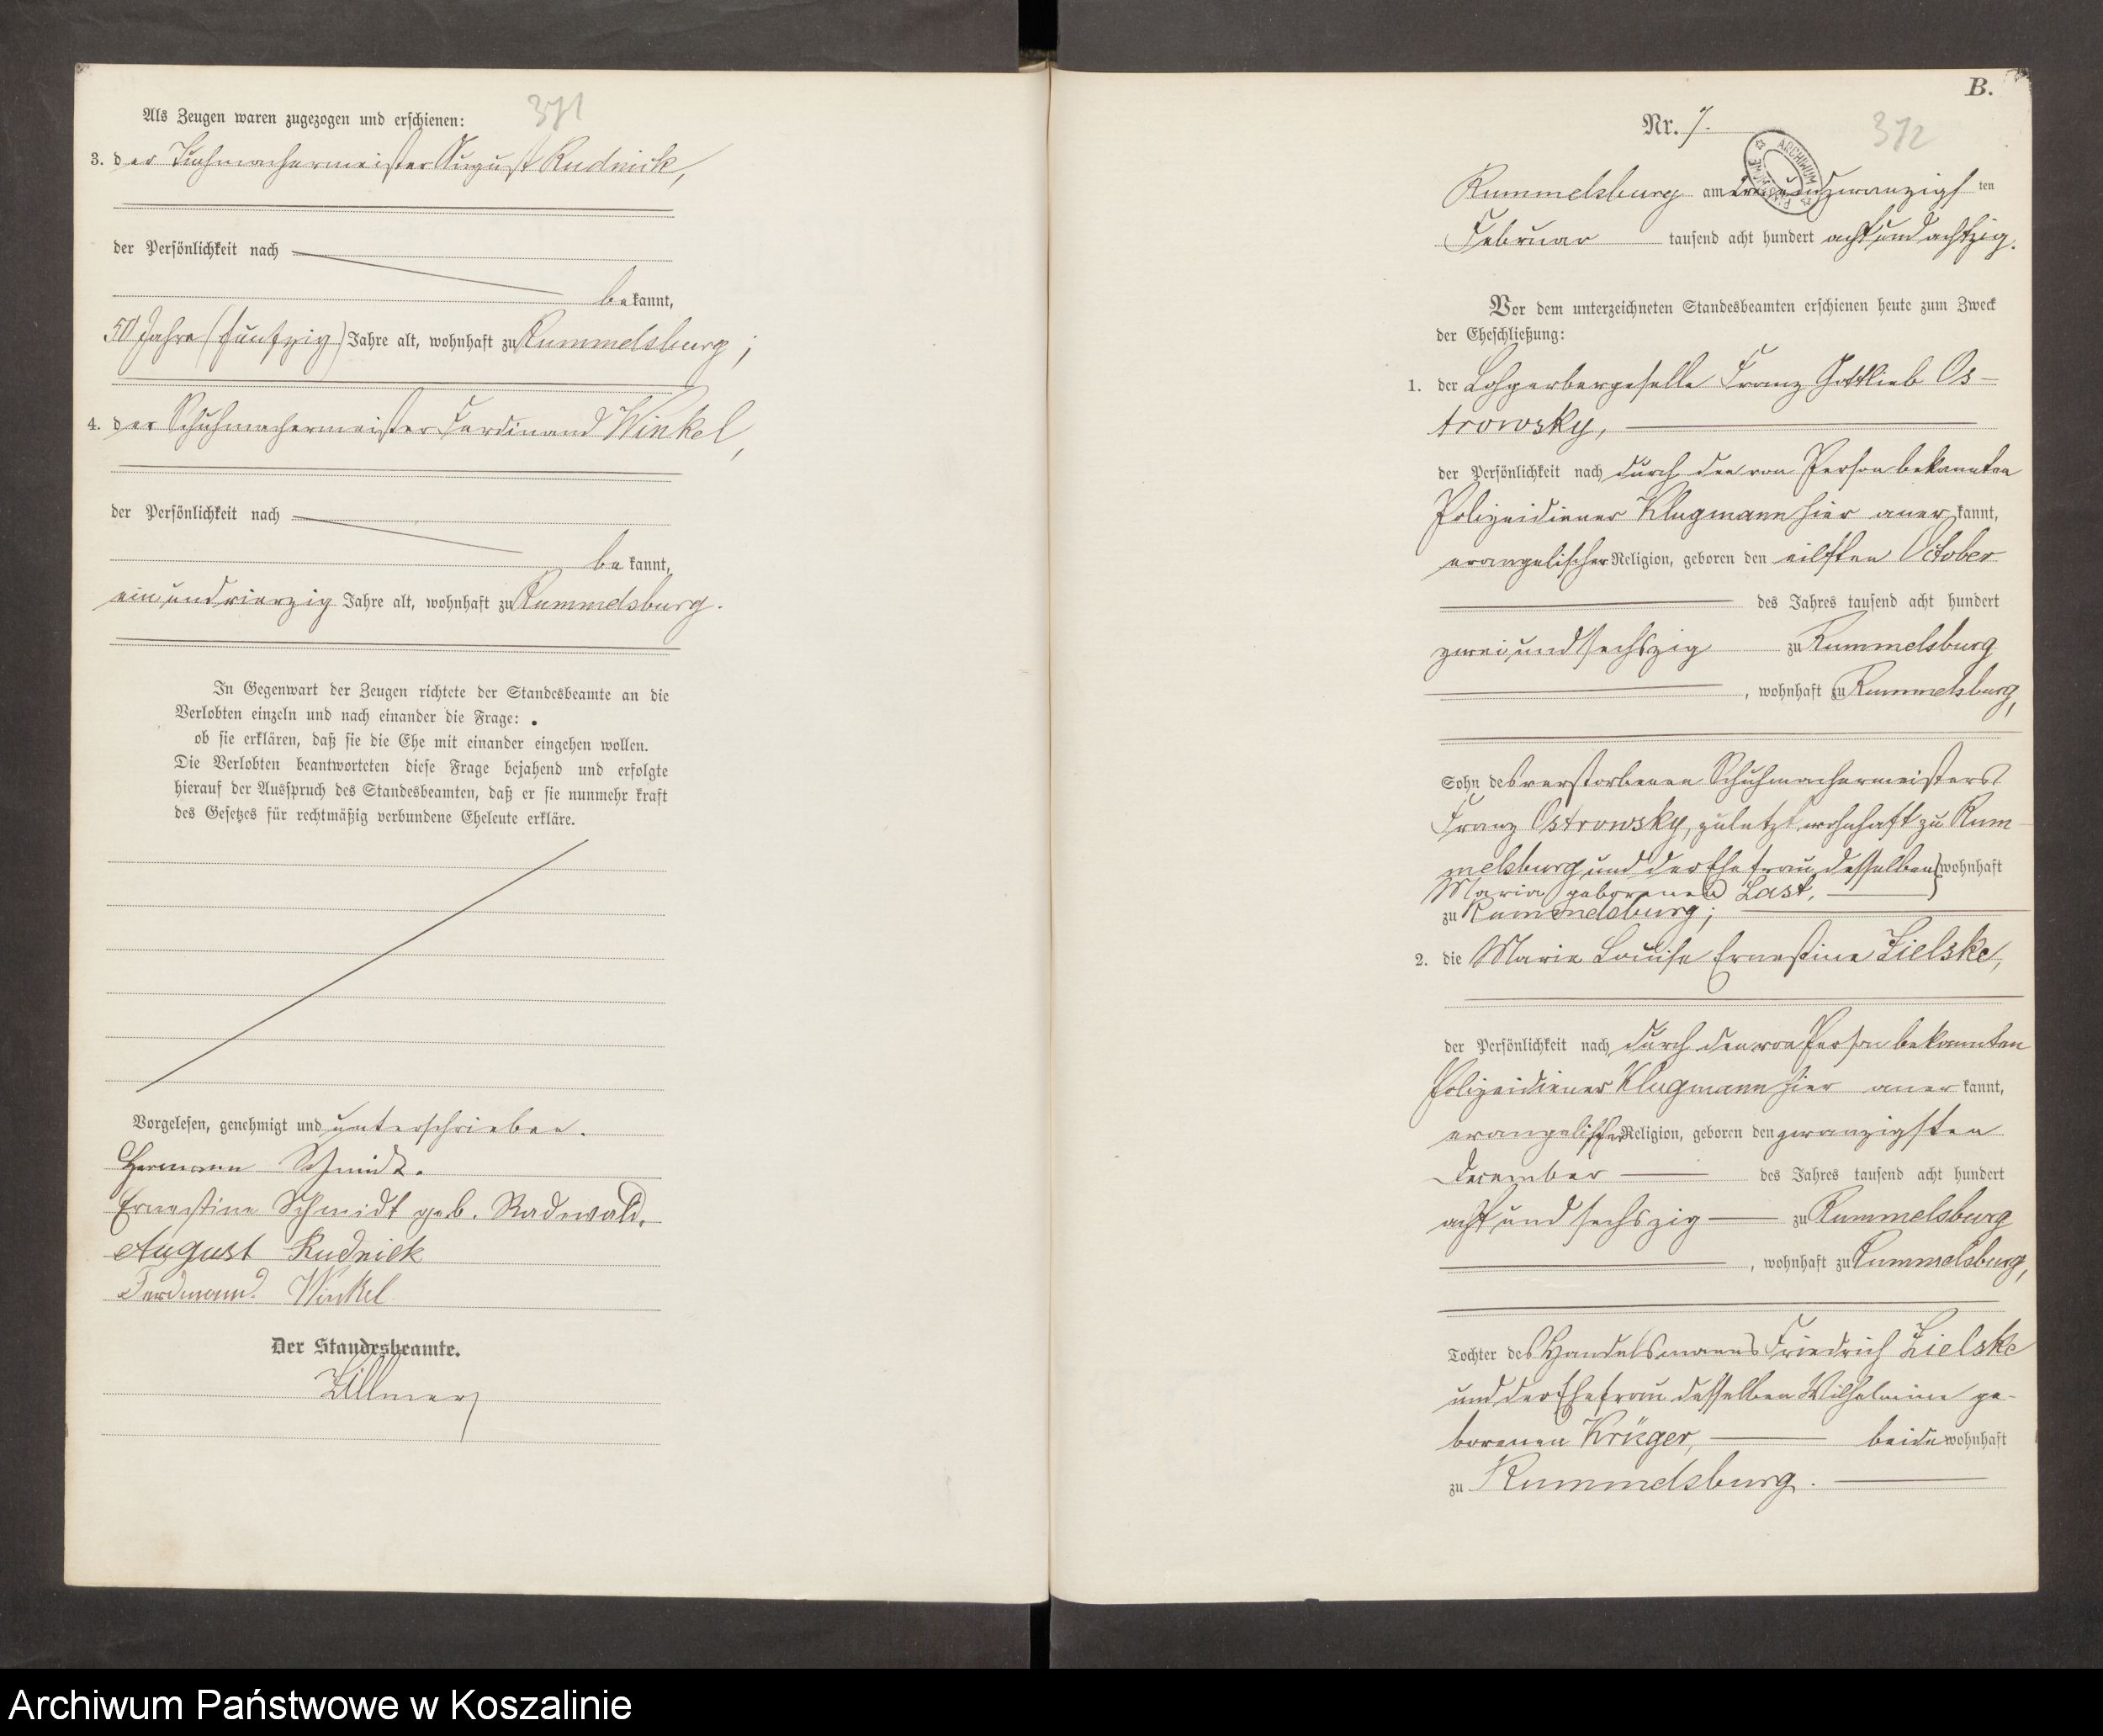 371
Als Zeugen waren zugezogen und erschienen:
3. der Tuchmachermeister August Rudnick,
der Persönlichkeit nach
bekannt,
50 Jahre (fünfzig) Jahre alt, wohnhaft zu Rummelsburg;
4. der Schuhmachermeister Ferdinand Winkel,
der Persönlichkeit nach
bekannt,
einundvierzig Jahre alt, wohnhaft zu Rummelsburg.
In Gegenwart der Zeugen richtete der Standesbeamte an die
Verlobten einzeln und nach einander die Frage:
ob sie erklären, daß sie die Ehe mit einander eingehen wollen.
Die Verlobten beantworteten diese Frage bejahend und erfolgte
hierauf der Ausspruch des Standesbeamten, daß er sie nunmehr kraft
des Gesetzes für rechtmäßig verbundene Eheleute erkläre.
Vorgelesen, genehmigt und unterschrieben.
Hermann Schmidt.
Ernestine Schmidt geb. Radewald.
August Rudnick
Ferdinand Winkel
Der Standesbeamte.
Zillmer
B.
Nr. 7.
372
ARCHIWUM PAŃSTWOWE
Rummelsburg am dreiundzwanzigsten
Februar tausend acht hundert achtundachtzig.
Vor dem unterzeichneten Standesbeamten erschienen heute zum Zweck
der Eheschließung:
1. der Lohgerbergeselle Franz Gottlieb Os-
trowsky,
der Persönlichkeit nach durch den von Person bekannten
Polizeidiener Klugmann hier anerkannt,
evangelischer Religion, geboren den eilften October
des Jahres tausend acht hundert
zweiundsechszig zu Rummelsburg
, wohnhaft zu Rummelsburg,
Sohn des verstorbenen Schuhmachermeisters
Franz Ostrowsky, zuletzt wohnhaft zu Rum-
melsburg und der Ehefrau desselben wohnhaft
Maria geborenen Last,
zu Rummelsburg;
2. die Marie Louise Ernestine Zielske,
der Persönlichkeit nach durch den von Person bekannten
Polizeidiener Klugmann hier anerkannt,
evangelischer Religion, geboren den zwanzigsten
December des Jahres tausend acht hundert
acht und sechszig zu Rummelsburg
, wohnhaft zu Rummelsburg,
Tochter des Handelsmanns Friedrich Zielske
und der Ehefrau desselben Wilhelmine ge-
borenen Krüger, beide wohnhaft
zu Rummelsburg.
Archiwum Państwowe w Koszalinie